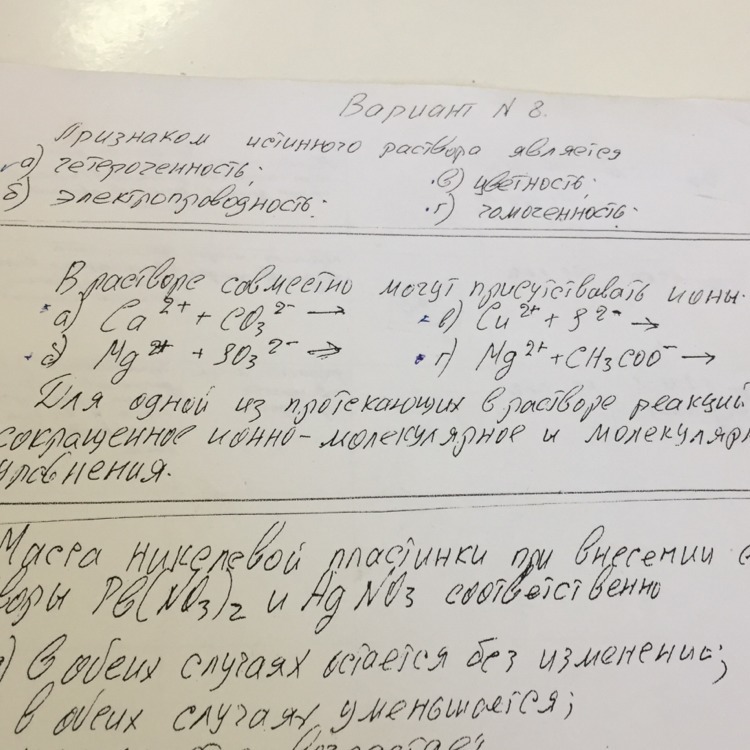 Вариант N 8.
Признаком истинного раствора является
а) гетерогенность; в) цветность;
б) электропроводность; г) гомогенность.
В растворе совместно могут присутствовать ионы.
а) Ca²⁺ + CO₃²⁻ → в) Cu²⁺ + S²⁻ →
б) Mg²⁺ + SO₃²⁻ → г) Mg²⁺ + CH₃COO⁻ →
Для одной из протекающих в растворе реакций
сокращенное ионно-молекулярное и
уравнения.
Масса никелевой пластинки при внесении
Pb(NO₃)₂ и AgNO₃ соответственно
) в обеих случаях остается без изменений;
в обеих случаях уменьшается;